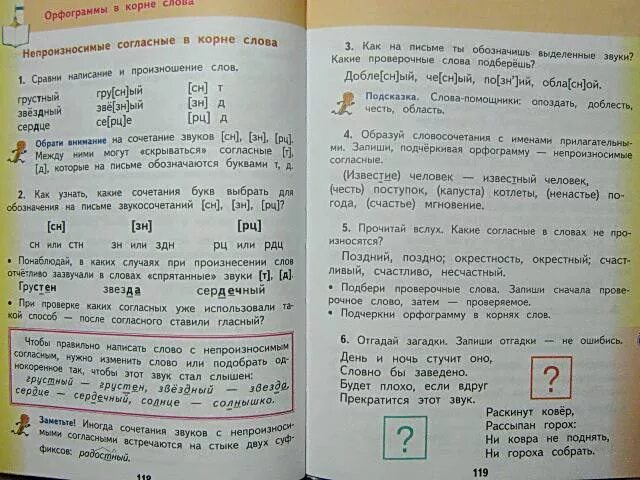 Орфограммы в корне слова
Непроизносимые согласные в корне слова
1. Сравни написание и произношение слов.
грустный гру[сн]ый [сн] т
звёздный звё[зн]ый [зн] д
сердце се[рц]е [рц] д
Обрати внимание на сочетание звуков [сн], [зн], [рц].
Между ними могут «скрываться» согласные [т],
[д], которые на письме обозначаются буквами т, д.
2. Как узнать, какие сочетания букв выбрать для
обозначения на письме звукосочетаний [сн], [зн], [рц]?
[сн] [зн] [рц]
сн или стн зн или здн рц или рдц
• Понаблюдай, в каких случаях при произнесении слов
отчётливо зазвучали в словах «спрятанные» звуки [т], [д].
Грустен звезда сердечный
• При проверке каких согласных уже использовали та-
кой способ — после согласного ставили гласный?
Чтобы правильно написать слово с непроизносимым
согласным, нужно изменить слово или подобрать од-
нокоренное так, чтобы этот звук стал слышен:
грустный — грустен, звёздный — звезда,
сердце — сердечный, солнце — солнышко.
Заметьте! Иногда сочетания звуков с непроизноси-
мыми согласными встречаются на стыке двух суф-
фиксов: радостный.
118
3. Как на письме ты обозначишь выделенные звуки?
Какие проверочные слова подберёшь?
Добле[сн]ый, че[сн]ый, по[зн']ий, обла[сн]ой.
Подсказка. Слова-помощники: опоздать, доблесть,
честь, область.
4. Образуй словосочетания с именами прилагательны-
ми. Запиши, подчёркивая орфограмму — непроизносимые
согласные.
(Известие) человек — известный человек,
(честь) поступок, (капуста) котлеты, (ненастье) по-
года, (счастье) мгновение.
5. Прочитай вслух. Какие согласные в словах не про-
износятся?
Поздний, поздно; окрестность, окрестный; счаст-
ливый, счастливо, несчастный.
• Подбери проверочные слова. Запиши сначала прове-
рочное слово, затем — проверяемое.
• Подчеркни орфограмму в корнях слов.
6. Отгадай загадки. Запиши отгадки — не ошибись.
День и ночь стучит оно,
Словно бы заведено.
Будет плохо, если вдруг
Прекратится этот звук.
?
Раскинут ковёр,
Рассыпан горох:
Ни ковра не поднять,
Ни гороха собрать.
?
119